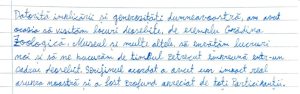 Datorită implicării și generozității dumneavoastră, am avut
ocazia să vizităm locuri deosebite, de exemplu Grădina
Zoologică, Muzeul și multe altele, să învățăm lucruri
noi și să ne bucurăm de timpul petrecut împreună într-un
cadru deosebit. Sprijinul acordat a avut un impact real
asupra noastră și a fost profund apreciat de toți participanții.